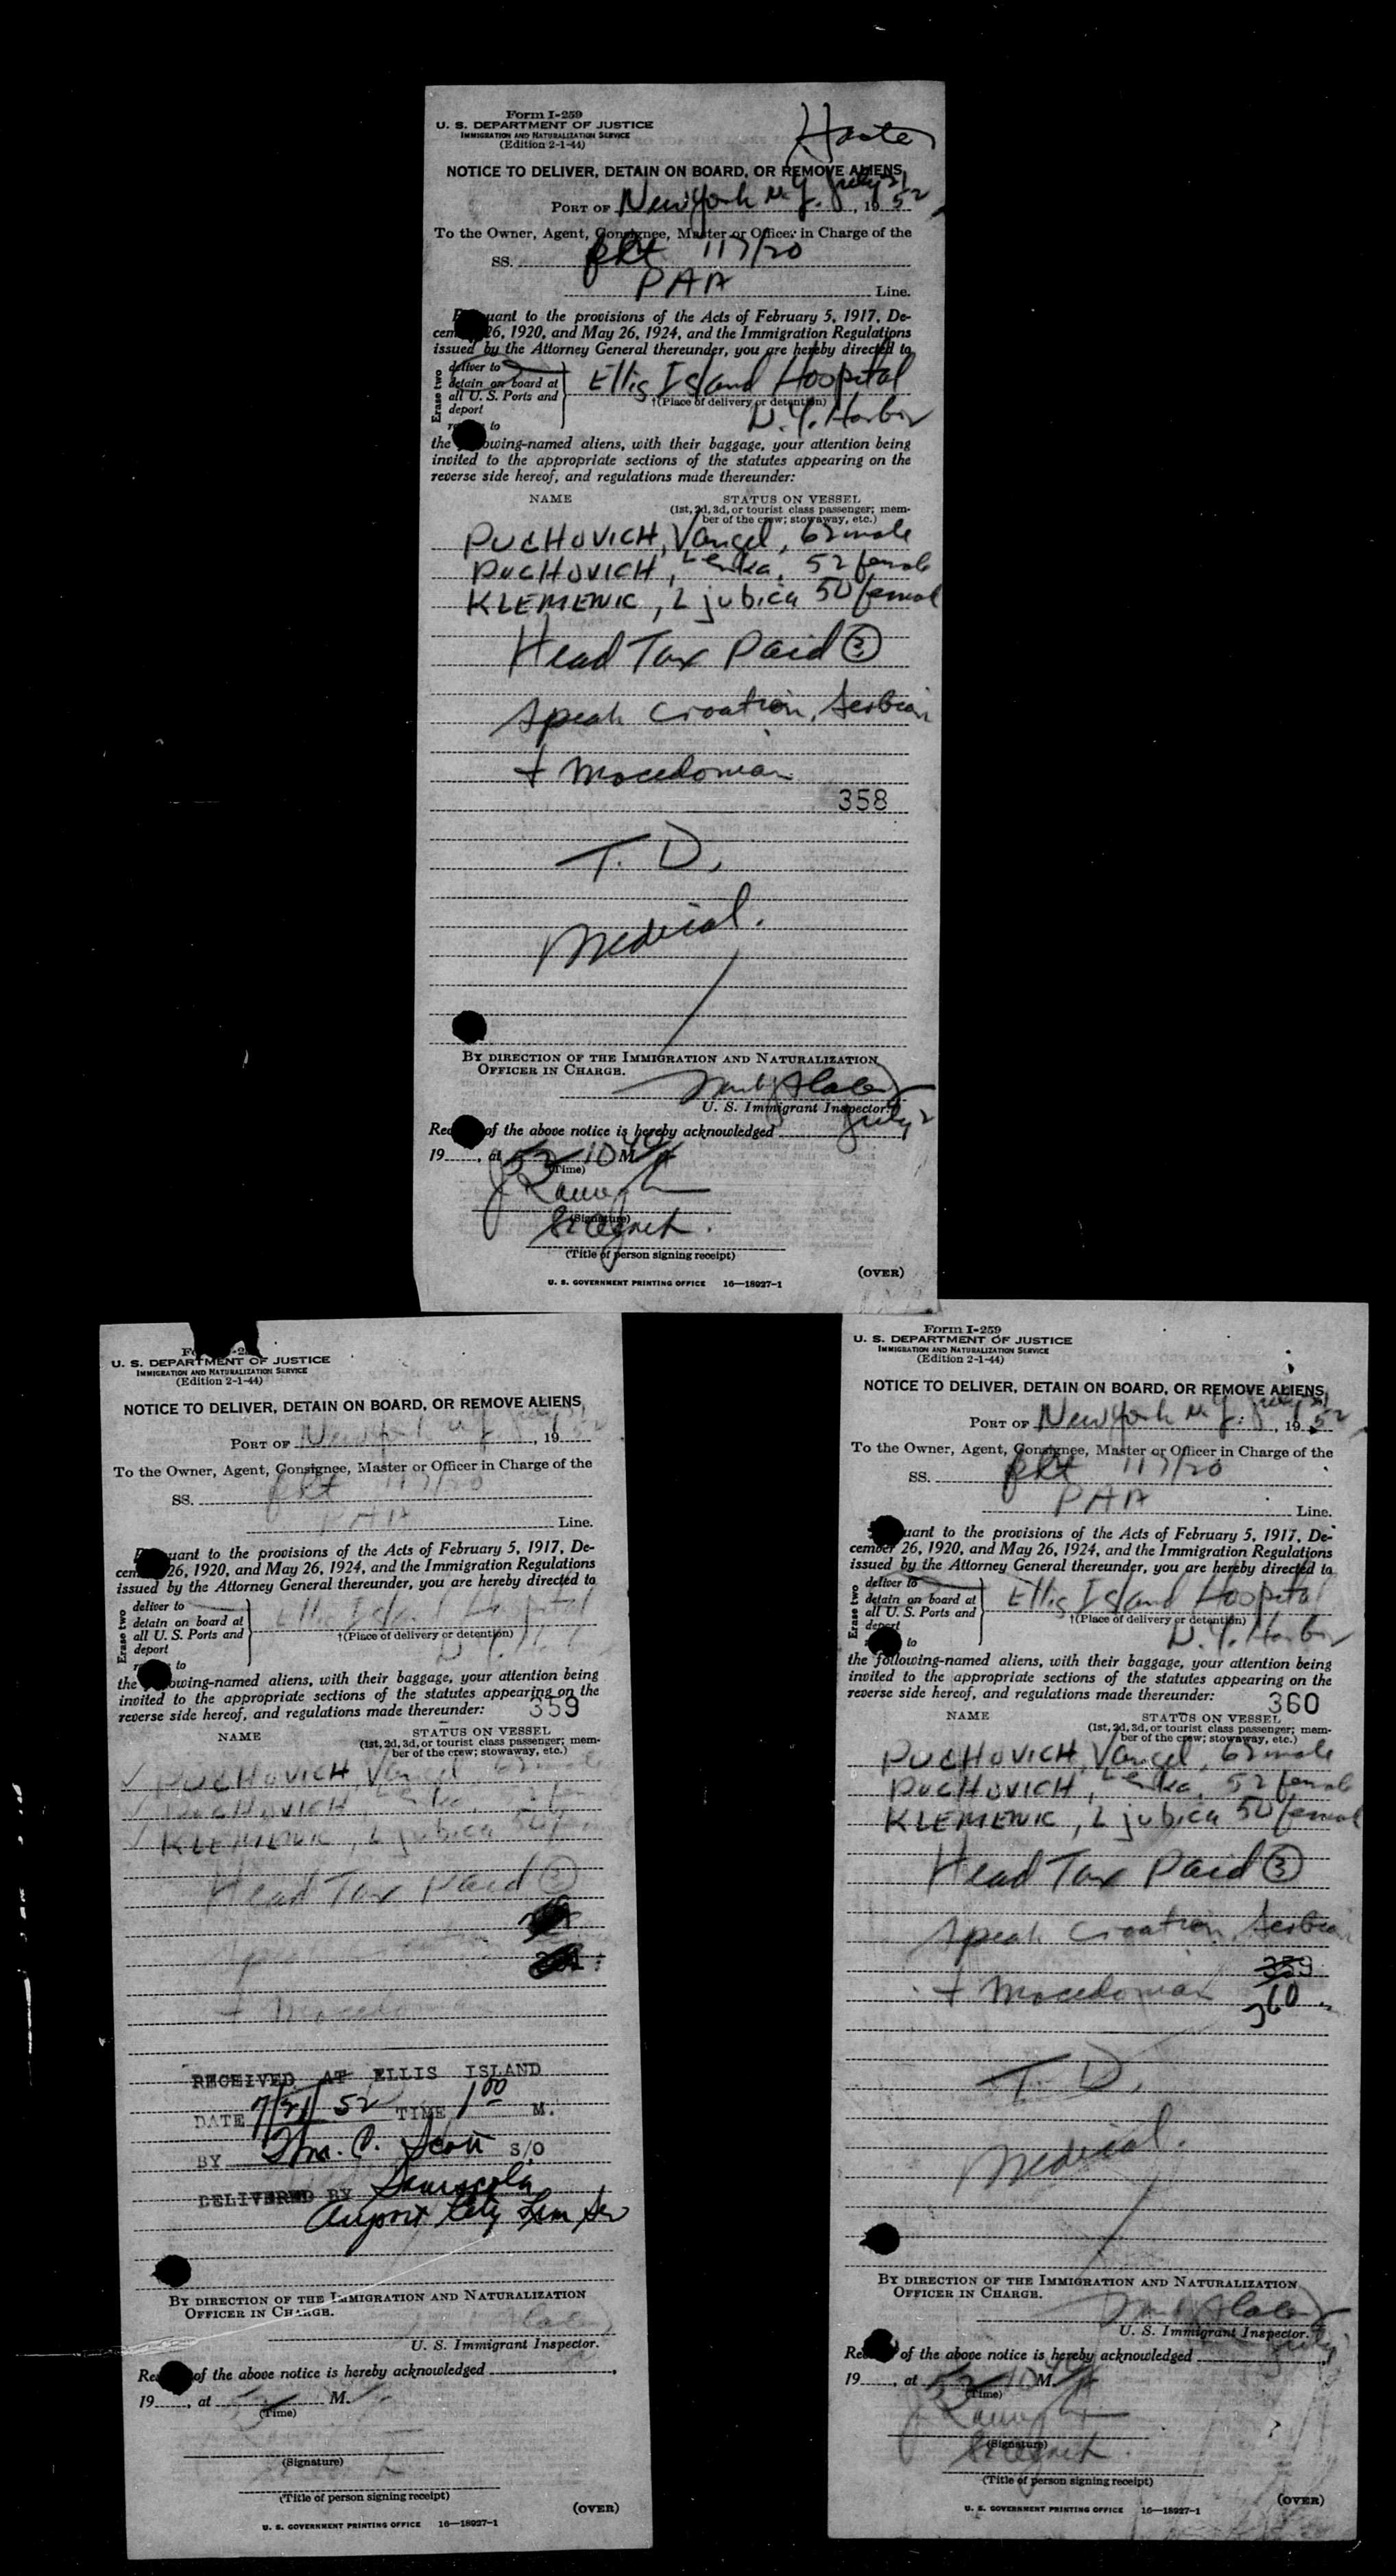 Form I-259
U. S. DEPARTMENT OF JUSTICE
IMMIGRATION AND NATURALIZATION SERVICE
(Edition 2-1-44)
NOTICE TO DELIVER, DETAIN ON BOARD, OR REMOVE ALIENS
PORT OF New York N.Y. July 21, 1952
To the Owner, Agent, Consignee, Master or Officer in Charge of the
SS. flt 117/20
PAA Line.
uant to the provisions of the Acts of February 5, 1917, De-
cem 26, 1920, and May 26, 1924, and the Immigration Regulations
issued by the Attorney General thereunder, you are hereby directed to
Erase two
deliver to
detain on board at
all U. S. Ports and
deport
to
Ellis Island Hospital
†(Place of delivery or detention)
N.Y. Harbor
the owing-named aliens, with their baggage, your attention being
invited to the appropriate sections of the statutes appearing on the
reverse side hereof, and regulations made thereunder:
NAME STATUS ON VESSEL
(1st, 2d, 3d, or tourist class passenger; mem-
ber of the crew; stowaway, etc.)
PUCHOVICH, Vangel, 62 male
PUCHOVICH, Lenka, 52 female
KLEMENIC, Ljubica 50 female
Head Tax Paid ③
Speak Croatian, Serbian
+ Macedonian
358
T. D.
Medical.
BY DIRECTION OF THE IMMIGRATION AND NATURALIZATION
OFFICER IN CHARGE.
U. S. Immigrant Inspector.
Rec of the above notice is hereby acknowledged July 2
19 , at 52 10 M.
(Time)
(Signature)
(Title of person signing receipt)
(OVER)
U. S. GOVERNMENT PRINTING OFFICE 16—18027-1
U. S. DEPARTMENT OF JUSTICE
IMMIGRATION AND NATURALIZATION SERVICE
(Edition 2-1-44)
NOTICE TO DELIVER, DETAIN ON BOARD, OR REMOVE ALIENS
PORT OF New York N.Y. , 19 52
To the Owner, Agent, Consignee, Master or Officer in Charge of the
SS. flt 117/20
PAA Line.
uant to the provisions of the Acts of February 5, 1917, De-
cem 26, 1920, and May 26, 1924, and the Immigration Regulations
issued by the Attorney General thereunder, you are hereby directed to
Erase two
deliver to
detain on board at
all U. S. Ports and
deport
to
Ellis Island Hospital
†(Place of delivery or detention)
the owing-named aliens, with their baggage, your attention being
invited to the appropriate sections of the statutes appearing on the
reverse side hereof, and regulations made thereunder: 359
NAME STATUS ON VESSEL
(1st, 2d, 3d, or tourist class passenger; mem-
ber of the crew; stowaway, etc.)
✓ PUCHOVICH, Vangel 62 male
✓ PUCHOVICH, Lenka,
✓ KLEMENIC, Ljubica 50
Head Tax Paid ③
+ Macedo
RECEIVED AT ELLIS ISLAND
DATE 7/21/52 TIME 1 00 M.
BY Wm. C. Scott S/O
DELIVERED BY
Airport City
BY DIRECTION OF THE IMMIGRATION AND NATURALIZATION
OFFICER IN CHARGE.
U. S. Immigrant Inspector.
Re of the above notice is hereby acknowledged
19 , at M.
(Time)
(Signature)
(Title of person signing receipt)
(OVER)
U. S. GOVERNMENT PRINTING OFFICE 16—18027-1
Form I-259
U. S. DEPARTMENT OF JUSTICE
IMMIGRATION AND NATURALIZATION SERVICE
(Edition 2-1-44)
NOTICE TO DELIVER, DETAIN ON BOARD, OR REMOVE ALIENS
PORT OF New York N.Y. July 21, 1952
To the Owner, Agent, Consignee, Master or Officer in Charge of the
SS. flt 117/20
PAA Line.
uant to the provisions of the Acts of February 5, 1917, De-
cember 26, 1920, and May 26, 1924, and the Immigration Regulations
issued by the Attorney General thereunder, you are hereby directed to
Erase two
deliver to
detain on board at
all U. S. Ports and
deport
to
Ellis Island Hospital
†(Place of delivery or detention)
N.Y. Harbor
the following-named aliens, with their baggage, your attention being
invited to the appropriate sections of the statutes appearing on the
reverse side hereof, and regulations made thereunder: 360
NAME STATUS ON VESSEL
(1st, 2d, 3d, or tourist class passenger; mem-
ber of the crew; stowaway, etc.)
PUCHOVICH, Vangel, 62 male
PUCHOVICH, Lenka, 52 female
KLEMENIC, Ljubica 50 female
Head Tax Paid ③
Speak Croatian, Serbian
359
+ Macedonian 360
T. D.
Medical.
BY DIRECTION OF THE IMMIGRATION AND NATURALIZATION
OFFICER IN CHARGE.
U. S. Immigrant Inspector.
Re of the above notice is hereby acknowledged July
19 , at 52 10 M.
(Time)
(Signature)
(Title of person signing receipt)
(OVER)
U. S. GOVERNMENT PRINTING OFFICE 16—18027-1